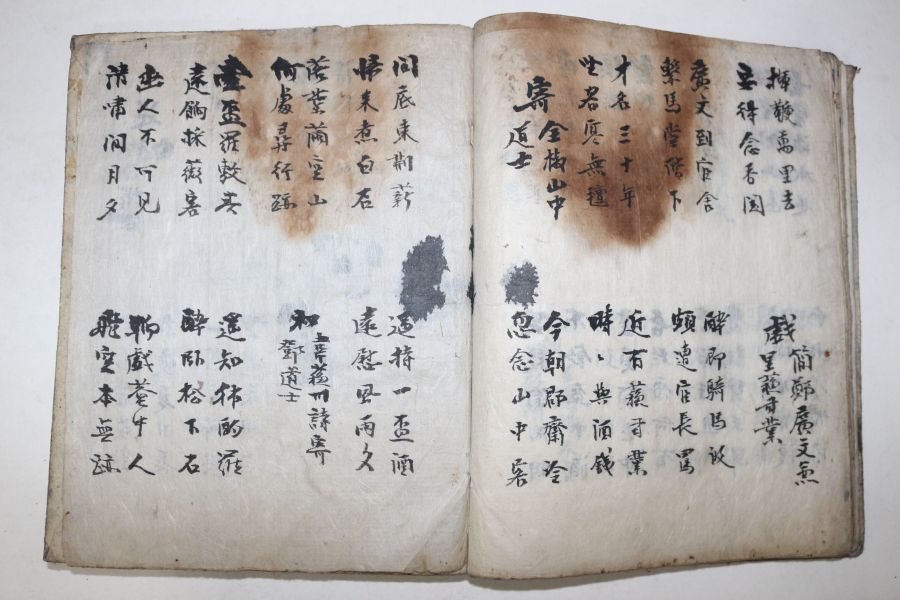 揮鞭萬里去
安得念香閨
戱簡鄭廣文兼
呈蘇司業
廣文到官舍
繫馬堂階下
醉即騎馬歸
頗遭官長罵
才名三十年
坐客寒無氈
近有蘇司業
時〻與酒錢
寄全椒山中
道士
今朝郡齋冷
忽念山中客
澗底束荆薪
歸来煮白石
遥持一盃酒
遠慰風雨夕
落葉滿空山
何處尋行跡
和韋蘇州詩寄
鄧道士
壹盃羅敷春
遠餉採薇客
遥知獨酌罷
醉卧松下石
幽人不可見
清嘯聞月夕
聊戱菴中人
飛空本無跡